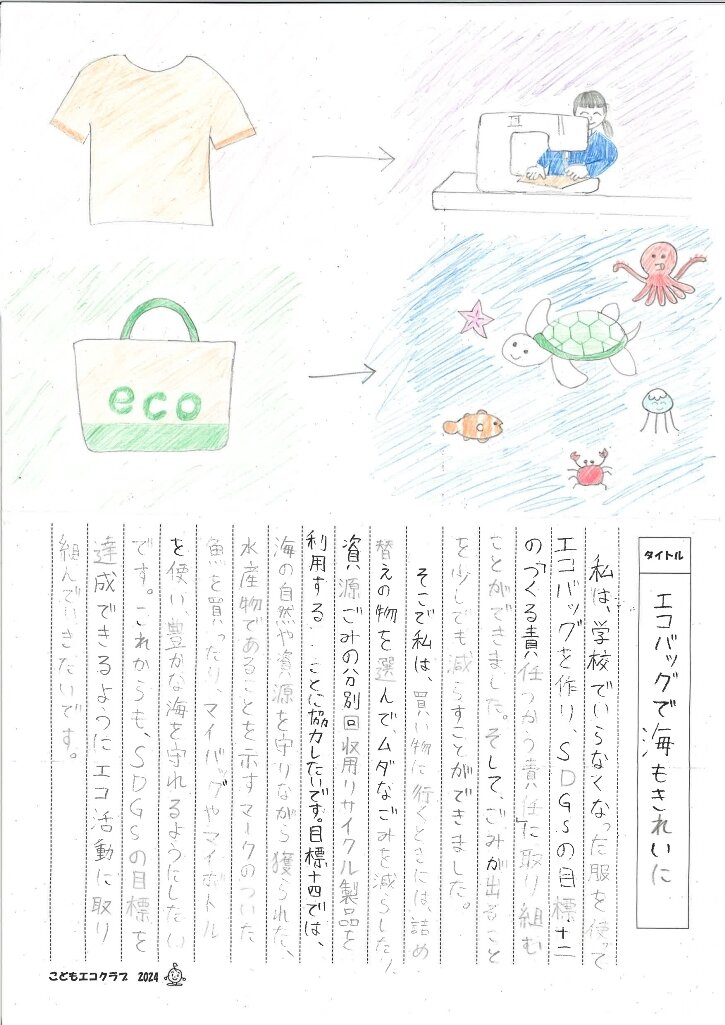 eco
タイトル
エコバッグで海もきれいに
私は、学校でいらなくなった服を使って
エコバッグを作り、SDGsの目標十二
の「つくる責任つかう責任」に取り組む
ことができました。そして、ごみが出ること
を少しでも減らすことができました。
そこで私は、買い物に行くときには、詰め
替えの物を選んで、ムダなごみを減らしたり、
資源ごみの分別回収用リサイクル製品を
利用することに協力したいです。目標十四では、
海の自然や資源を守りながら獲られた、
水産物であることを示すマークのついた
魚を買ったり、マイバッグやマイボトル
を使い、豊かな海を守れるようにしたい
です。これからも、SDGsの目標を
達成できるようにエコ活動に取り
組んでいきたいです。
こどもエコクラブ 2024